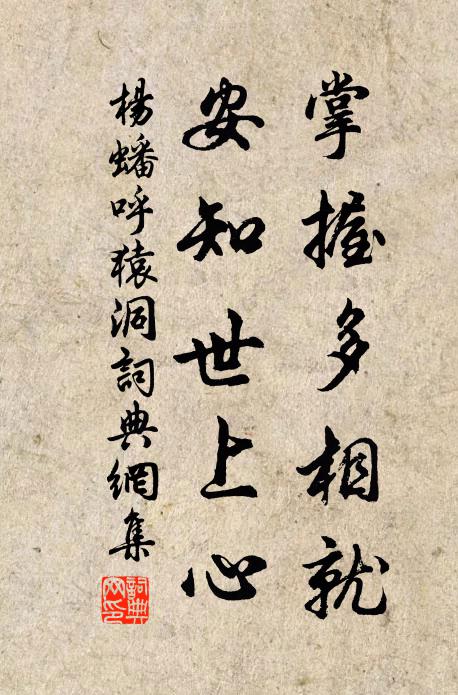 掌握多相就
安知世上心
楊蟠呼猿洞詞典網集
詞典網印